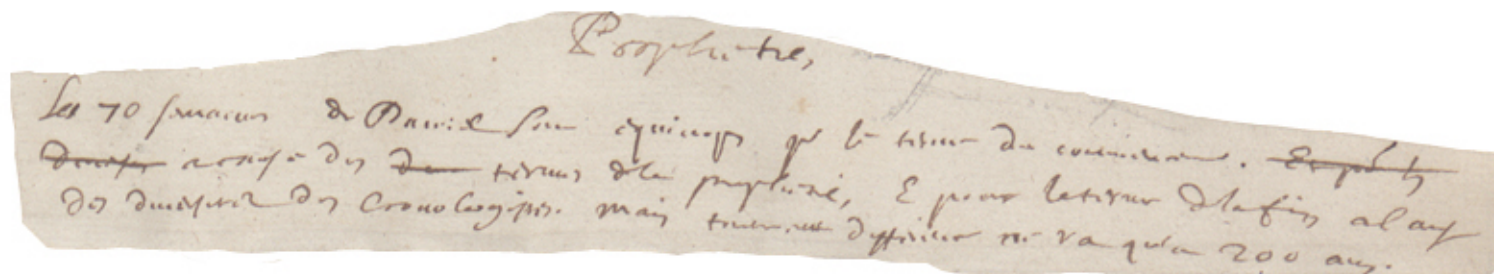 Propheties,
Les 70 semaines de Daniel sont equivoques pr le terme du commencement. Et pour les
diverses a cause des des termes de la prophetie, & pour le terme de la fin a cause
des diversites des Cronologistes. Mais toute cette difference ne va qu'a 200 ans.